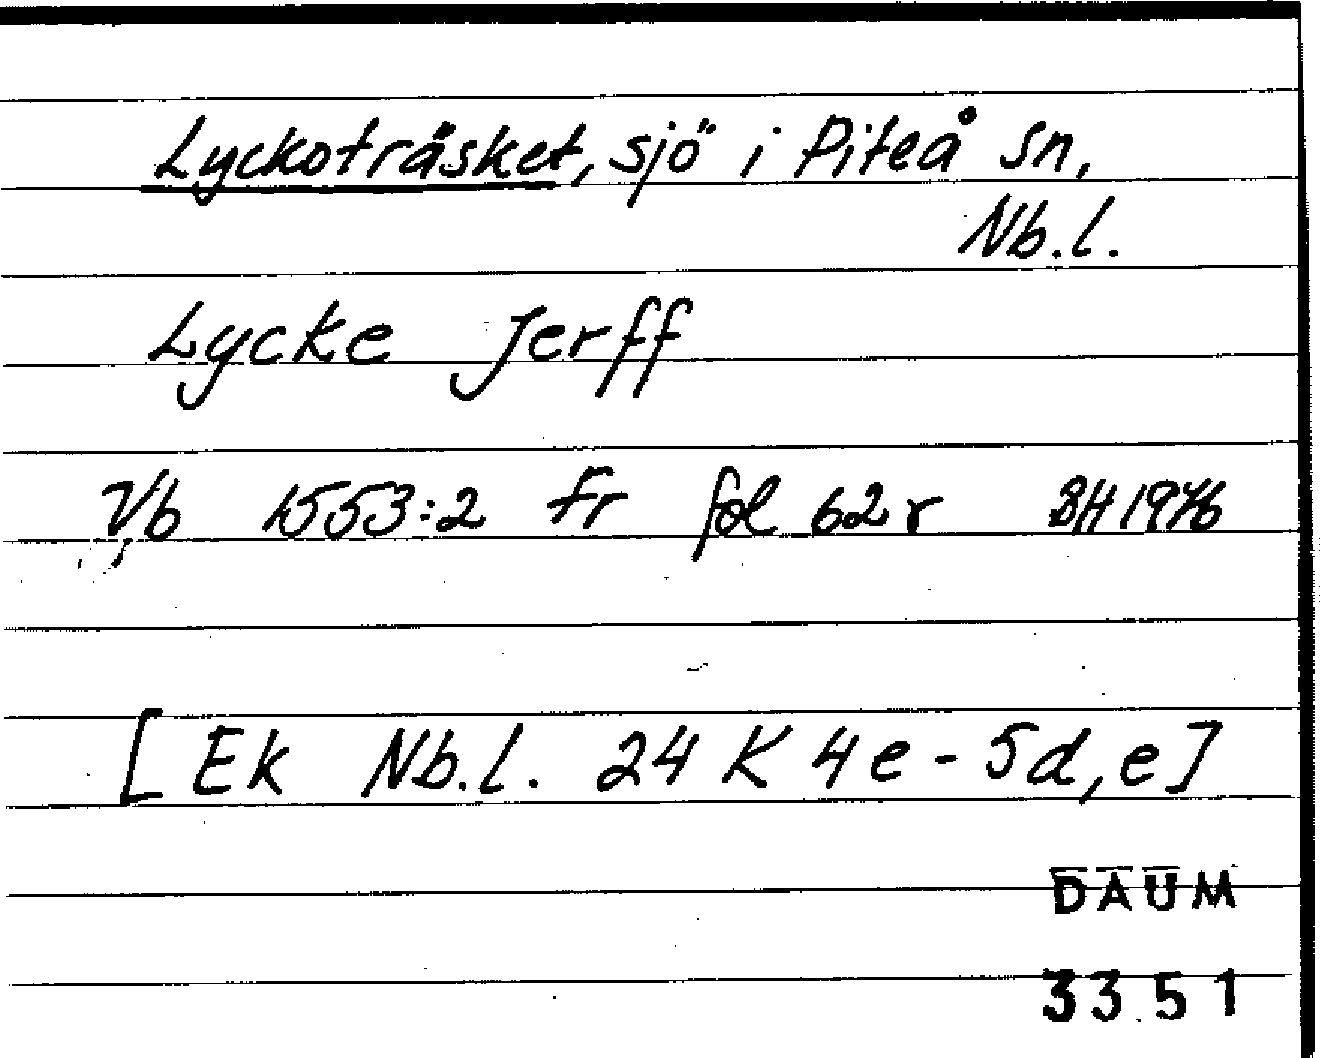 Lyckoträsket, sjö i Piteå sn,
Nb.l.
Lycke Jerff
Vb 1553:2 Fr fol 62 r BH 1976
[Ek Nb.l. 24 K 4e - 5d,e]
DAUM
3351